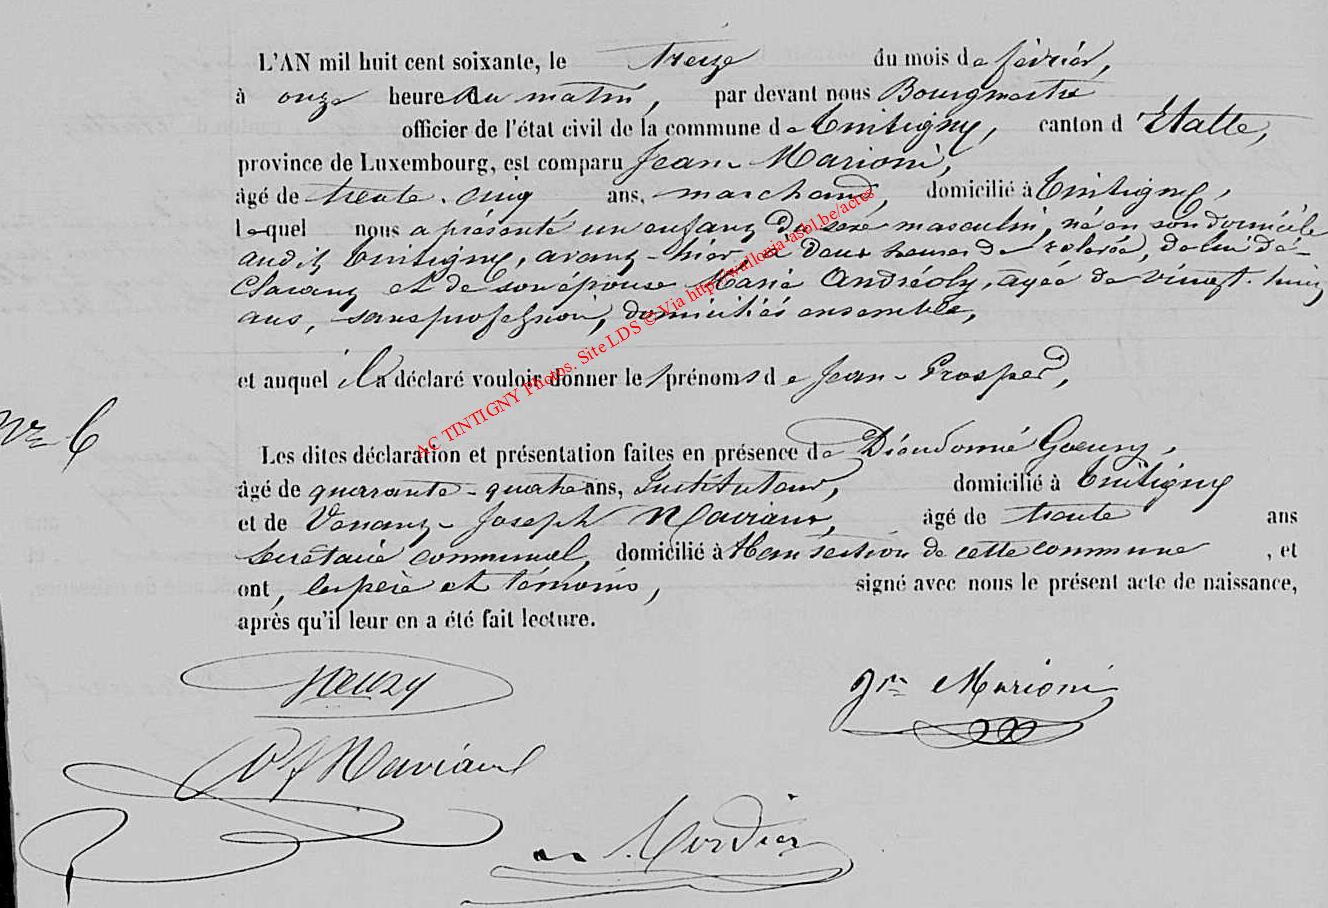 L'AN mil huit cent soixante, le treize du mois de février,
à onze heures du matin, par devant nous Bourgmestre
officier de l'état civil de la commune de Tintigny, canton d'Etalle,
province de Luxembourg, est comparu Jean Marioni,
âgé de trente-cinq ans, marchand, domicilié à Tintigny,
lequel nous a présenté un enfant du sexe masculin, né en son domicile
audit Tintigny, avant-hier, à deux heures de relevée, de lui dé-
clarant et de son épouse Marie Andréoly, agée de vingt-huit
ans, sans profession, domiciliés ensemble,
et auquel il a déclaré vouloir donner les prénoms de Jean-Prosper,
N° 6
Les dites déclaration et présentation faites en présence de Dieudonné Goeury,
âgé de quarante-quatre ans, Instituteur, domicilié à Tintigny
et de Venant-Joseph Maviaux, âgé de trente ans
Secrétaire communal, domicilié à Han section de cette commune, et
ont, les père et témoins, signé avec nous le présent acte de naissance,
après qu'il leur en a été fait lecture.
Goeury
Marioni
AC TINTIGNY Photos. Site LDS © Via http://wallonia-asbl.be/actes